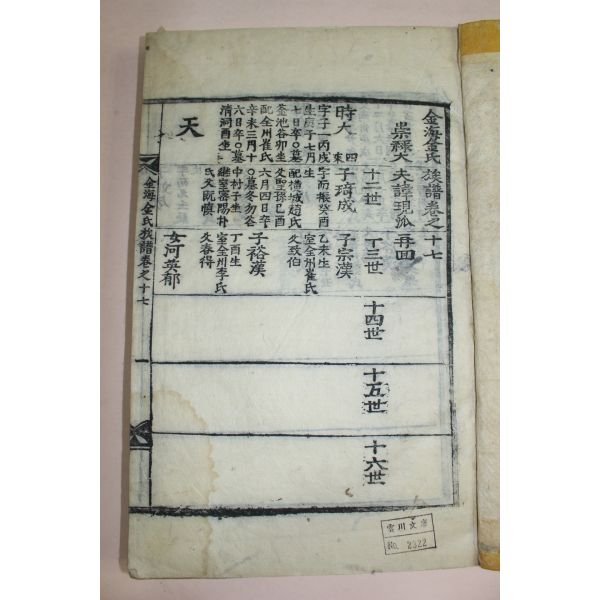 金海金氏族譜卷之十七
崇祿大夫諱現派再回
十二世
十三世
十四世
十五世
十六世
時大
字子一丙戌
生庚子七月
七日卒〇墓
釜池谷卯坐
配全州崔氏
辛未三月十
六日卒〇墓
清洞酉坐
天
子琦成
字而振癸酉
生
配橫城趙氏
父聖孫己酉
六月四日卒
〇墓冬勿谷
中村子坐
繼室密陽朴
氏父既慎
子宗漢
乙未生
室全州崔氏
父致伯
子裕漢
丁酉生
室全州李氏
父春得
女河英郁
金海金氏族譜卷之十七
一
雲川文庫
No. 2322